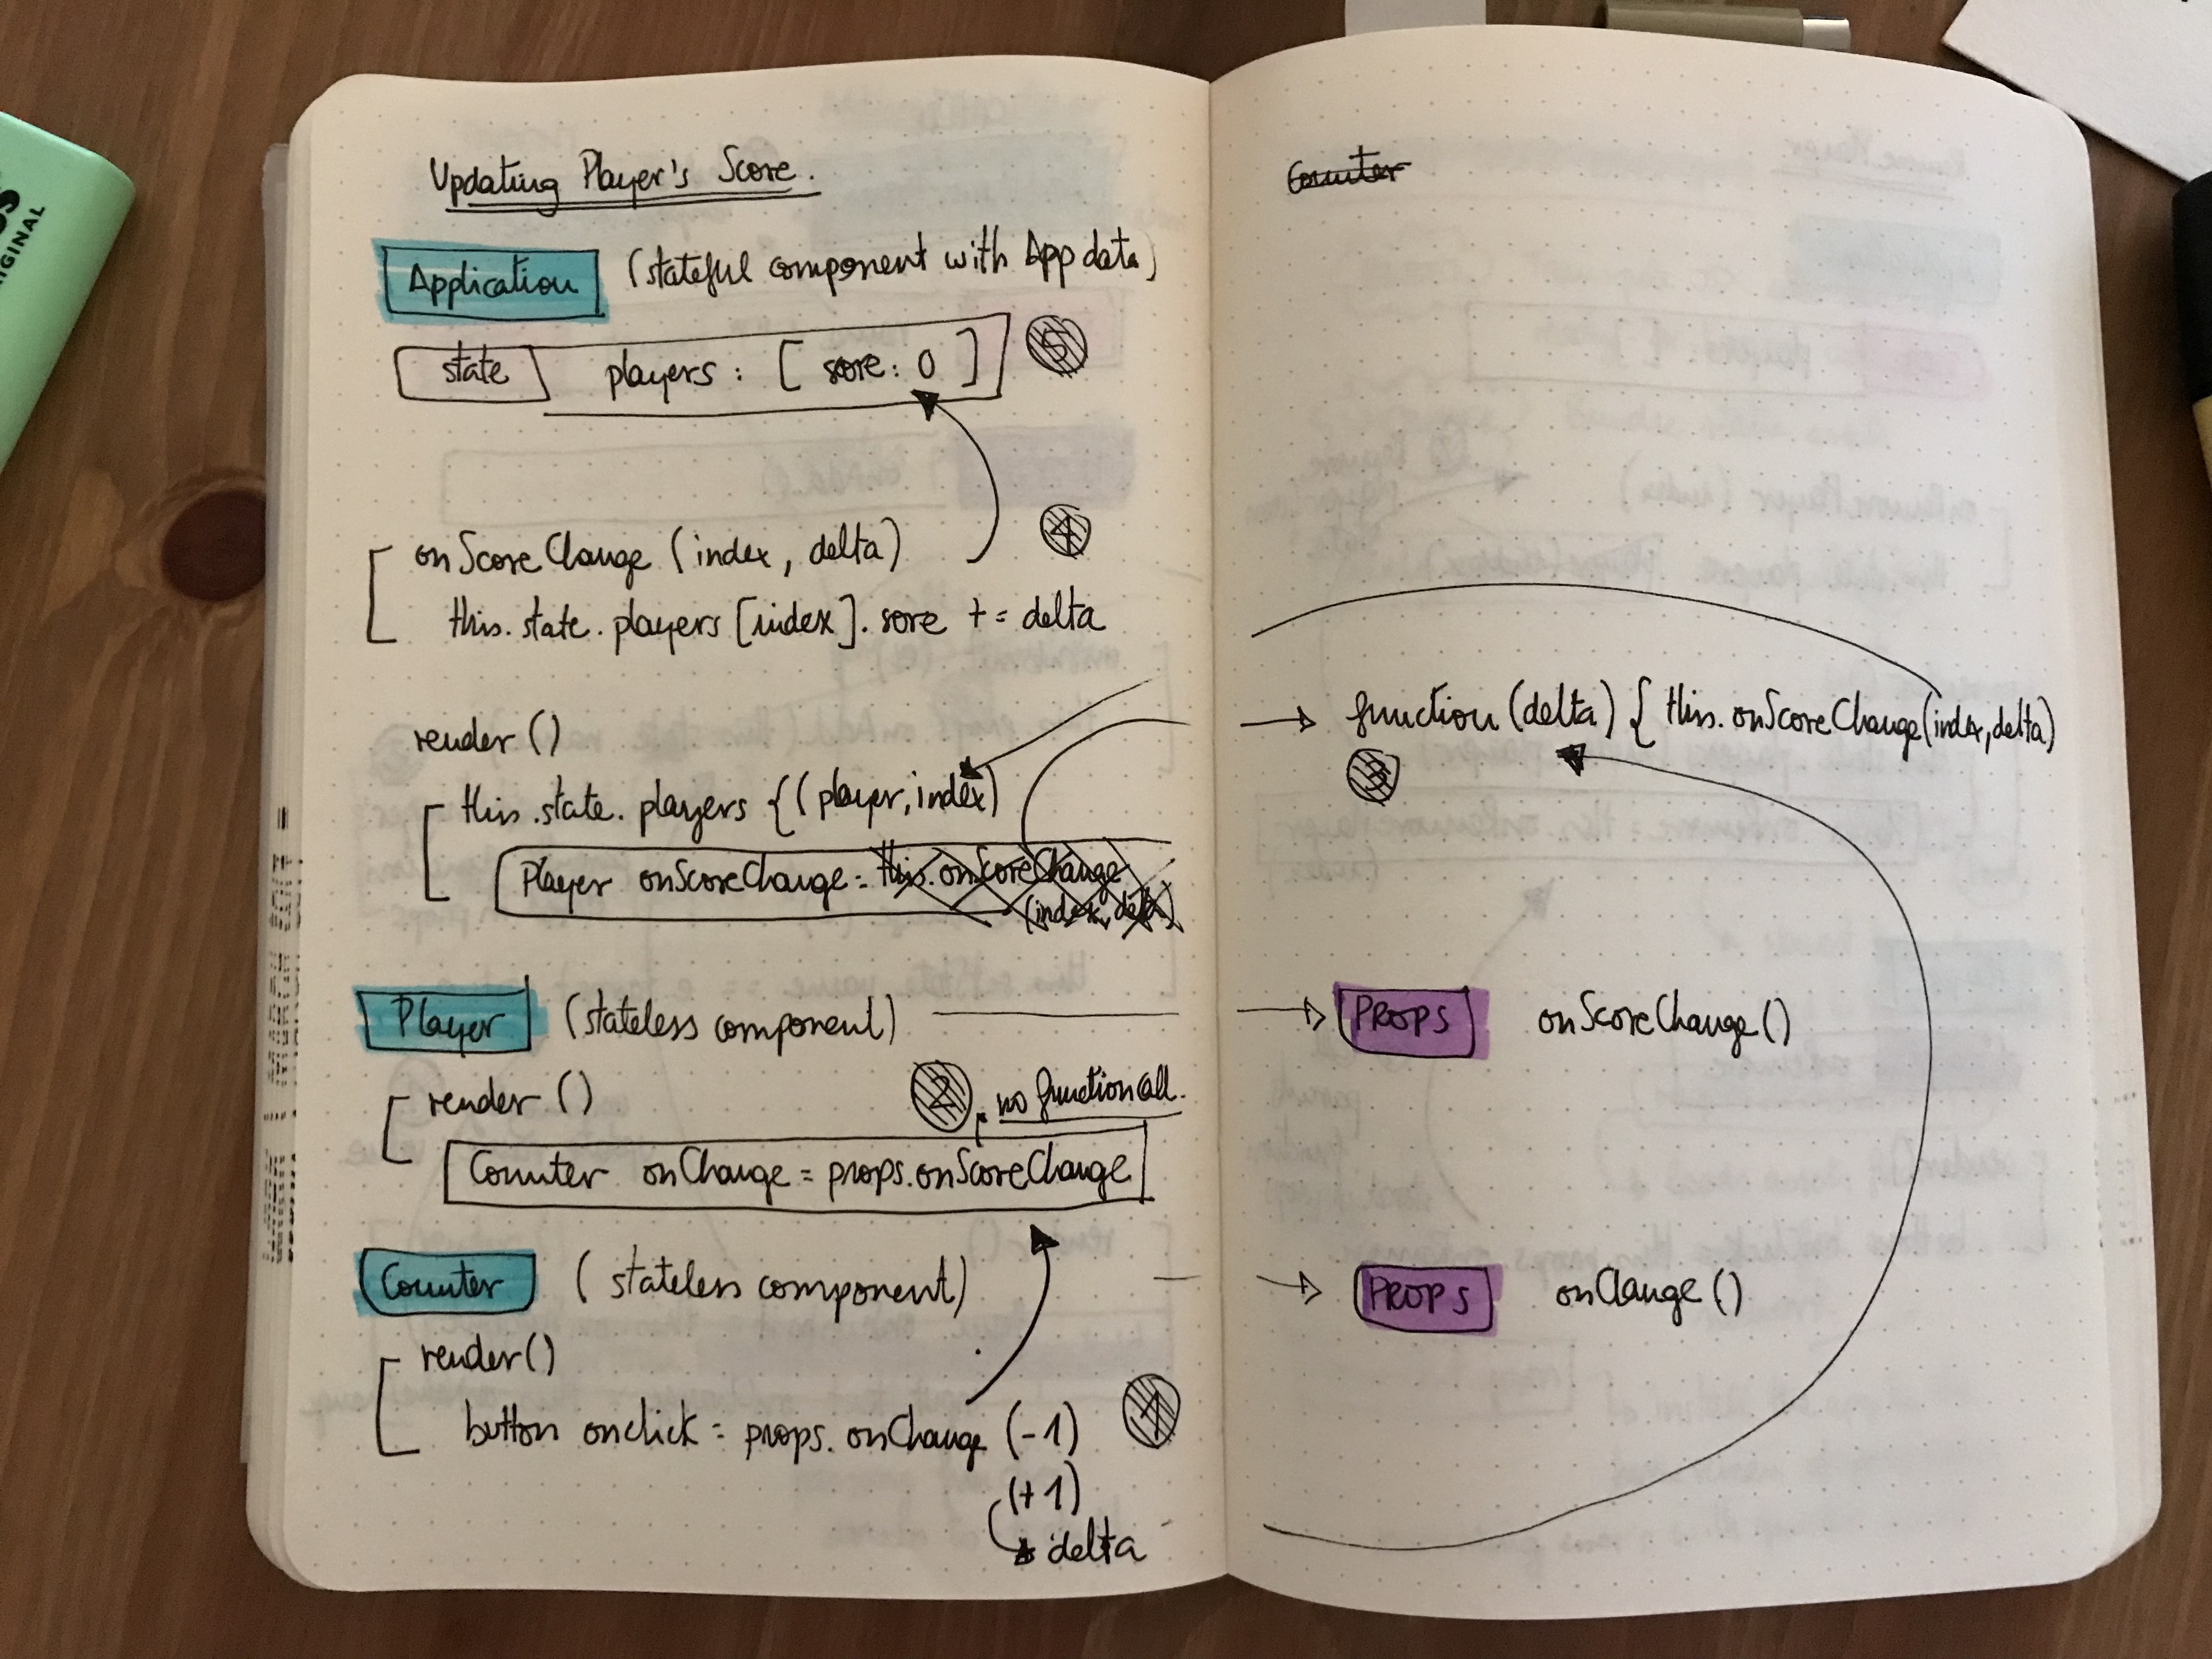 Updating Player's Score.
Application (stateful component with App data)
state players : [ score: 0 ] 5
onScoreChange (index, delta) 4
this.state.players [index].sore += delta
render ()
this.state.players {(player, index)
Player onScoreChange = this.onScoreChange
(index, delta)
Player (stateless component)
render () 2 no function call.
Counter onChange = props.onScoreChange
Counter (stateless component)
render ()
button onclick = props.onChange (-1) 1
(+1)
delta
Counter
function (delta) { this.onScoreChange (index, delta)
3
PROPS onScoreChange ()
PROPS onChange ()
ORIGINAL